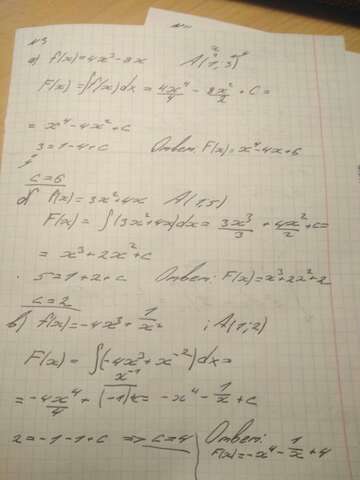 №3
а) f(x)=4x³-8x   A(1,3)
F(x)=∫f(x)dx = 4x⁴/4 - 8x²/2 + C =
= x⁴-4x²+c
3=1-4+c   Ответ: F(x)=x⁴-4x+6
c=6
б) f(x)=3x²+4x   A(1,5)
F(x)=∫(3x²+4x)dx= 3x³/3 + 4x²/2 +c=
= x³+2x²+c
5=1+2+c   Ответ: F(x)=x³+2x²+2
c=2
в) f(x)=-4x³+1/x²   ; A(1;2)
F(x)=∫(-4x³+x⁻²)dx=
= -4x⁴/4 + x⁻¹/(-1)+c= -x⁴-1/x+c
2=-1-1+c => c=4   Ответ:
F(x)=-x⁴-1/x+4